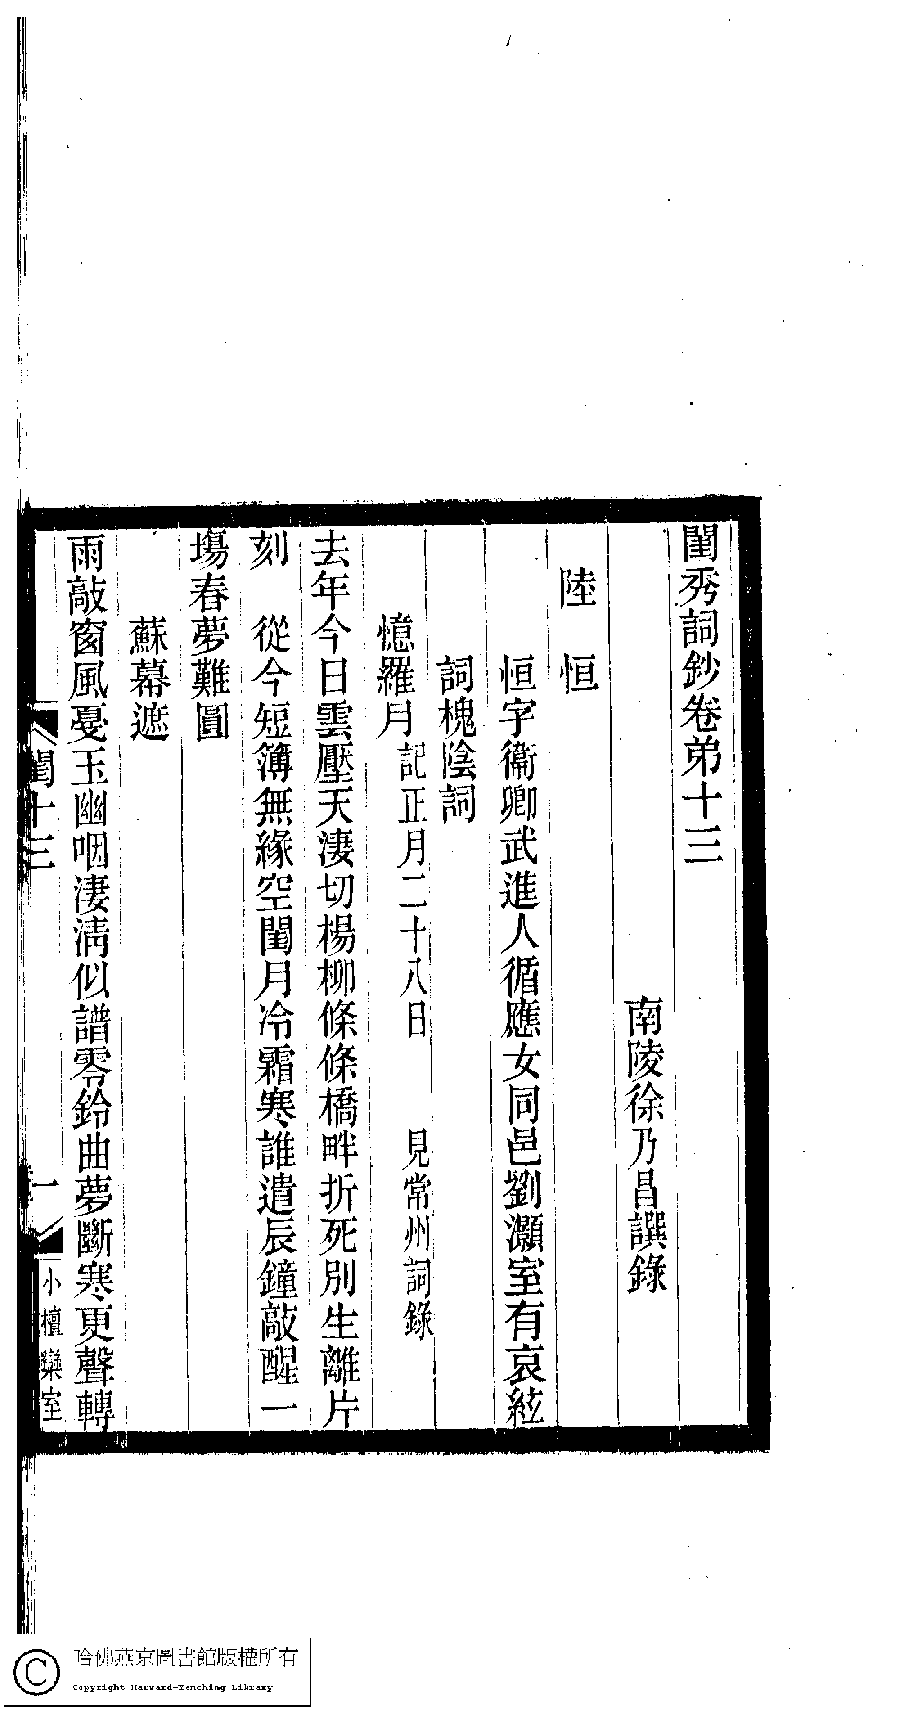 閨秀詞鈔卷弟十三
南陵徐乃昌譔錄
陸　恒
恒字衞卿武進人循應女同邑劉灝室有哀絃
詞槐陰詞
憶羅月記正月二十八日　見常州詞錄
去年今日雲壓天淒切楊柳條條橋畔折死別生離片
刻　從今短簿無緣空閨月冷霜寒誰遣辰鐘敲醒一
塲春夢難圓
蘇幕遮
雨敲窗風戞玉幽咽淒淸似譜零鈴曲夢斷寒更聲轉
閨十三
一
小檀欒室
哈佛燕京圖書館版權所有
Copyright Harvard-Yenching Library